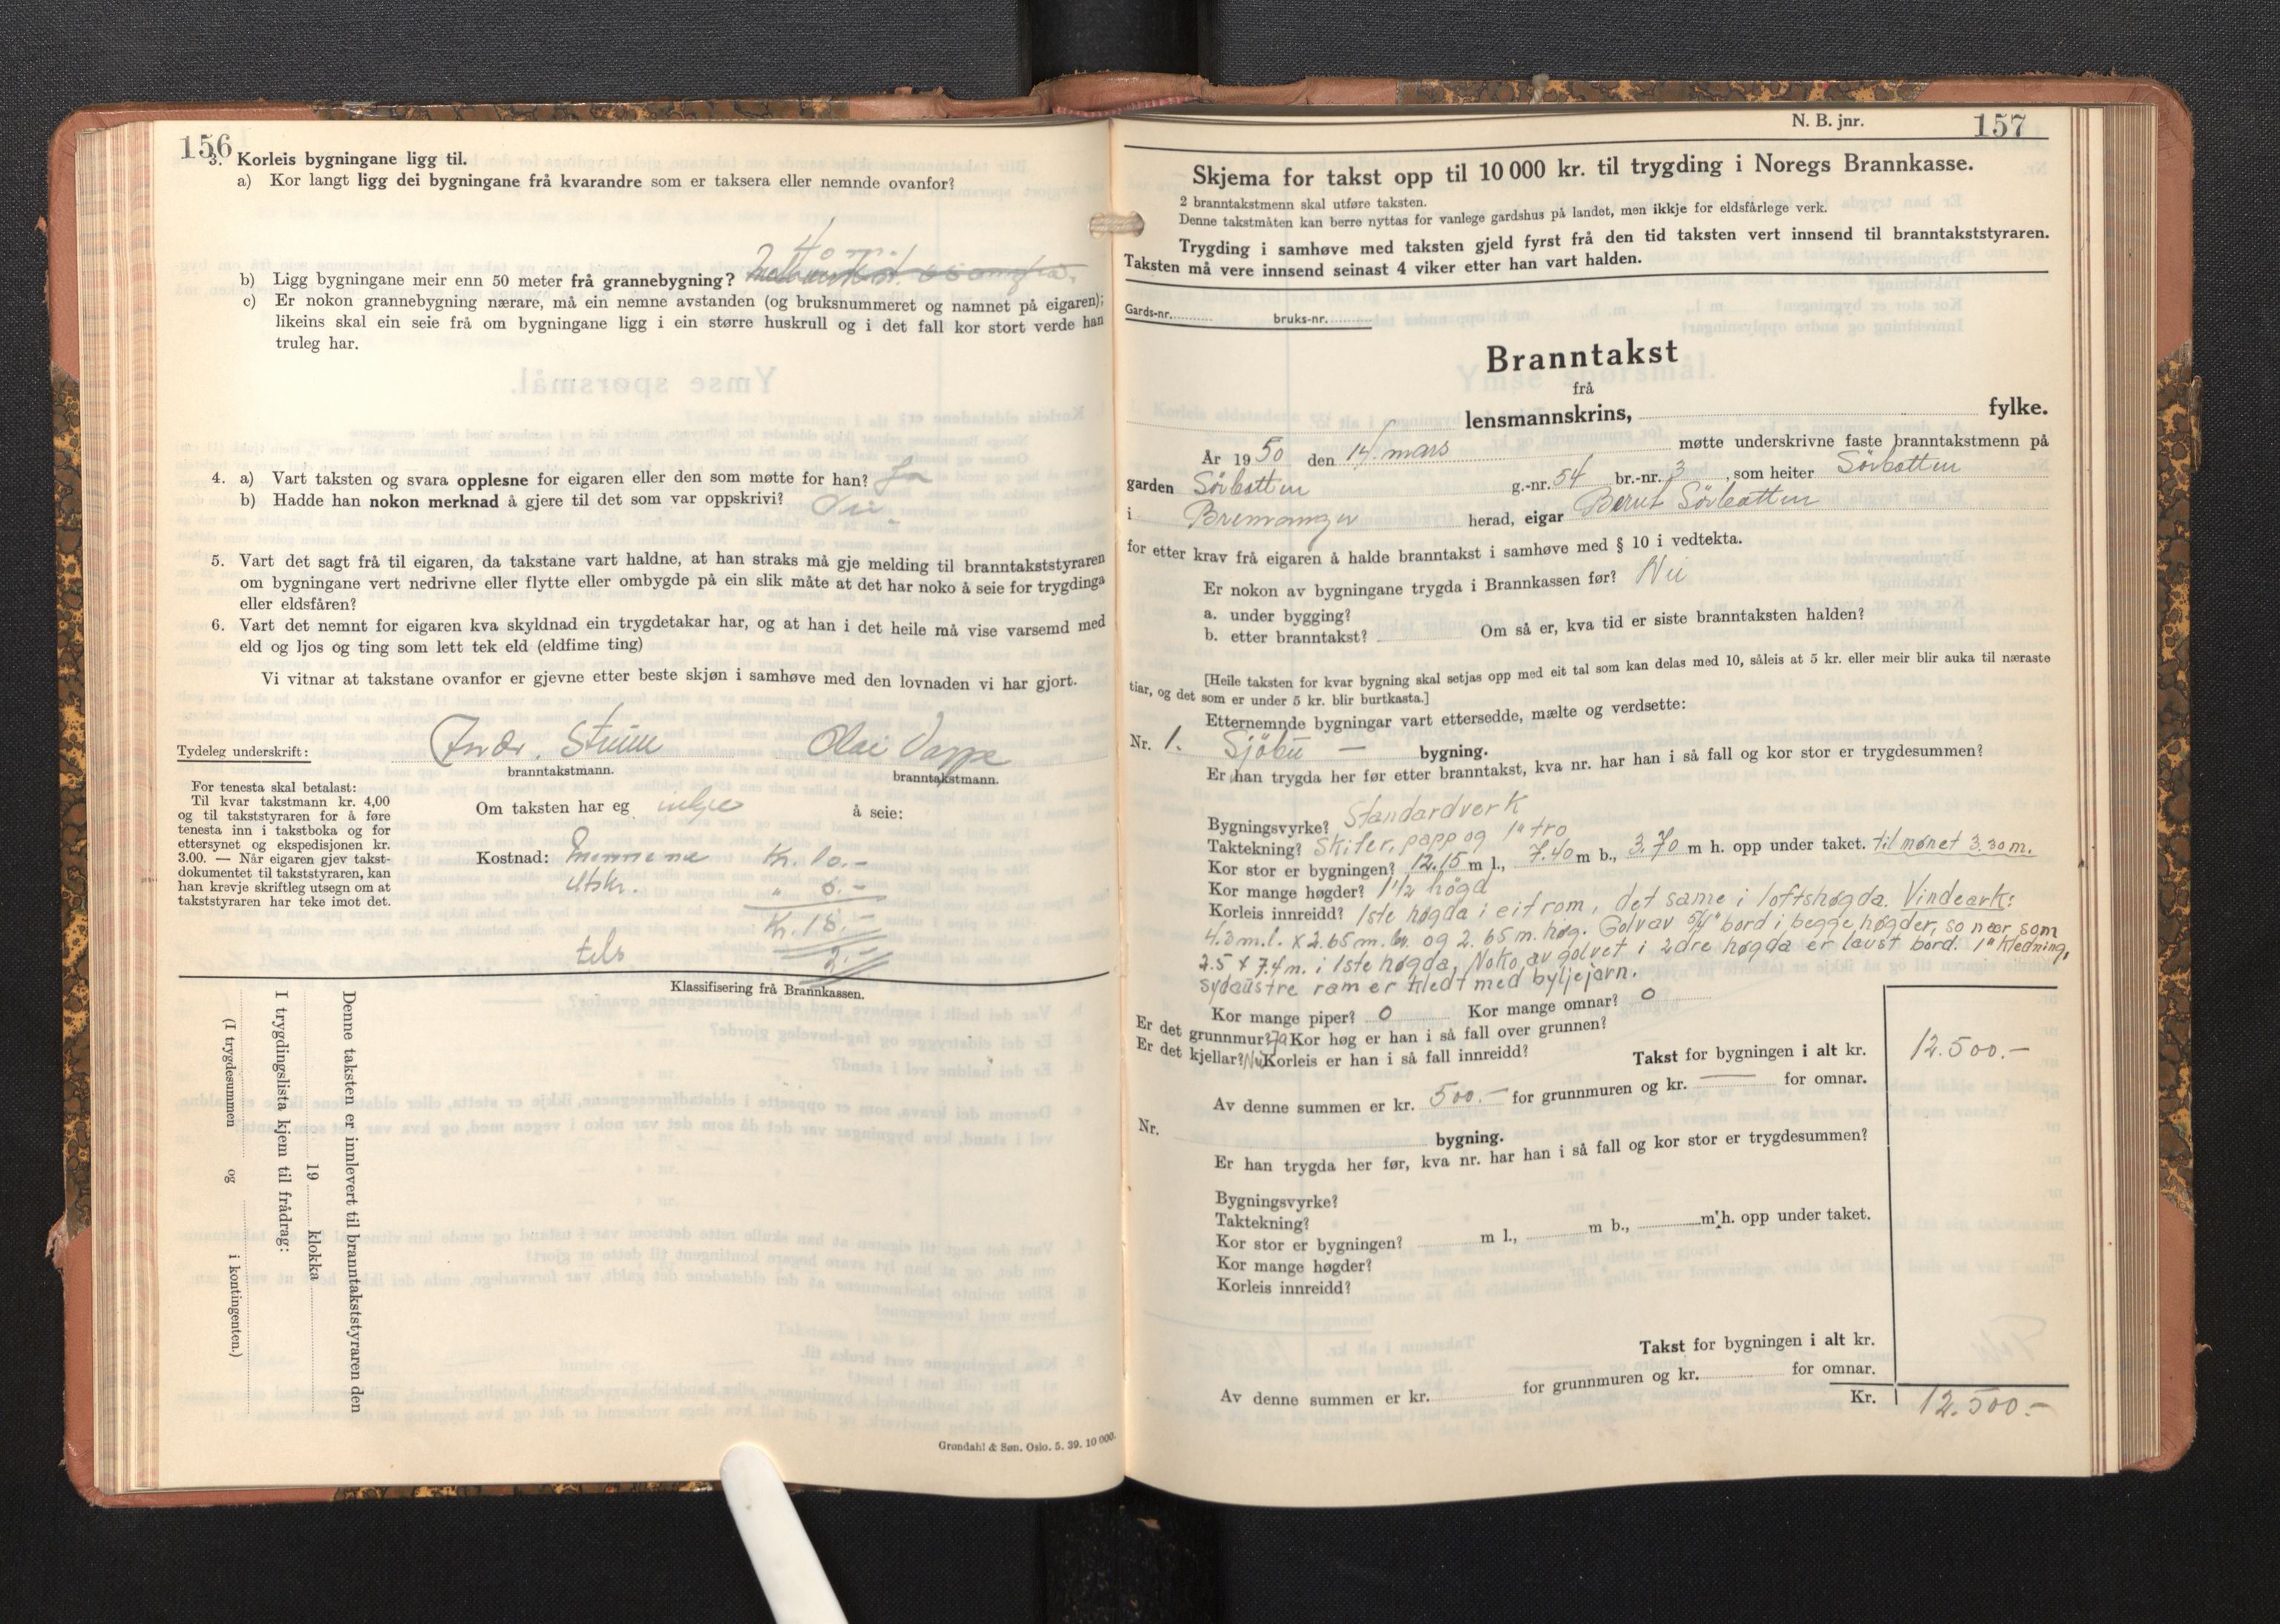 156
3. Korleis bygningane ligg til.
a) Kor langt ligg dei bygningane frå kvarandre som er taksera eller nemnde ovanfor?
40 m.
b) Ligg bygningane meir enn 50 meter frå grannebygning?
c) Er nokon grannebygning nærare, må ein nemne avstanden (og bruksnummeret og namnet på eigaren);
likeins skal ein seie frå om bygningane ligg i ein større huskrull og i det fall kor stort verde han
truleg har.
4. a) Vart taksten og svara opplesne for eigaren eller den som møtte for han? Ja
b) Hadde han nokon merknad å gjere til det som var oppskrivi? Nei
5. Vart det sagt frå til eigaren, da takstane vart haldne, at han straks må gje melding til branntakststyraren
om bygningane vert nedrivne eller flytte eller ombygde på ein slik måte at det har noko å seie for trygdinga
eller eldsfåren?
6. Vart det nemnt for eigaren kva skyldnad ein trygdetakar har, og at han i det heile må vise varsemd med
eld og ljos og ting som lett tek eld (eldfime ting)
Vi vitnar at takstane ovanfor er gjevne etter beste skjøn i samhøve med den lovnaden vi har gjort.
Tydeleg underskrift: Olai Vappe
branntakstmann. branntakstmann.
For tenesta skal betalast:
Til kvar takstmann kr. 4,00
og til takststyraren for å føre
tenesta inn i takstboka og for
ettersynet og ekspedisjonen kr.
3.00. — Når eigaren gjev takst-
dokumentet til takststyraren, kan
han krevje skriftleg utsegn om at
takststyraren har teke imot det.
Om taksten har eg inkje å seie:
Kostnad: Mennene Kr. 10.-
Utskr. " 5.-
Kr. 15.-
tels 2.-
Klassifisering frå Brannkassen.
Denne taksten er innlevert til branntakststyraren den
19 klokka
I trygdingslista kjem til frådrag:
(I trygdesummen og i kontingenten.)
Grøndahl & Søn. Oslo. 5. 39. 10 000.
N. B. jnr. 157
Skjema for takst opp til 10 000 kr. til trygding i Noregs Brannkasse.
2 branntakstmenn skal utføre taksten.
Denne takstmåten kan berre nyttas for vanlege gardshus på landet, men ikkje for eldsfårlege verk.
Trygding i samhøve med taksten gjeld fyrst frå den tid taksten vert innsend til branntakststyraren.
Taksten må vere innsend seinast 4 viker etter han vart halden.
Gards-nr. bruks-nr.
Branntakst
frå
lensmannskrins, fylke.
År 1950 den 14. mars møtte underskrivne faste branntakstmenn på
garden Sörbotten g.-nr. 54 br.-nr. 3, som heiter Sörbotten
i Bremanger herad, eigar Bernt Sörbotten
for etter krav frå eigaren å halde branntakst i samhøve med § 10 i vedtekta.
Er nokon av bygningane trygda i Brannkassen før? Nei
a. under bygging?
b. etter branntakst? Om så er, kva tid er siste branntaksten halden?
[Heile taksten for kvar bygning skal setjas opp med eit tal som kan delas med 10, såleis at 5 kr. eller meir blir auka til næraste
tiar, og det som er under 5 kr. blir burtkasta.]
Etternemnde bygningar vart ettersedde, mælte og verdsette:
Nr. 1. Sjöbu — bygning.
Er han trygda her før etter branntakst, kva nr. har han i så fall og kor stor er trygdesummen?
Bygningsvyrke? Standardverk
Taktekning? Skifer, papp og 1" tro
Kor stor er bygningen? 12.15 m l., 7.40 m b., 3.70 m h. opp under taket. til mønet 3.30 m.
Kor mange høgder? 1½ høgd
Korleis innreidd? 1ste høgda i eit rom, det same i loftshøgda. Vindeark:
4.0 m.l. x 2.65 m. br. og 2.65 m. høg. Golv av 5/4" bord i begge høgder, so nær som
2.5 x 7.4 m. i 1ste høgda, Noko av golvet i 2dre høgda er laust bord. 1" kledning,
sydaustre ram er kledt med byljejarn.
Kor mange piper? 0 Kor mange omnar? 0
Er det grunnmur? Ja Kor høg er han i så fall over grunnen?
Er det kjellar? Nei Korleis er han i så fall innreidd?
Takst for bygningen i alt kr. 12.500.-
Av denne summen er kr. 500.- for grunnmuren og kr. — for omnar.
Nr. bygning.
Er han trygda her før, kva nr. har han i så fall og kor stor er trygdesummen?
Bygningsvyrke?
Taktekning?
Kor stor er bygningen? m l., m b., m h. opp under taket.
Kor mange høgder?
Korleis innreidd?
Takst for bygningen i alt kr.
Av denne summen er kr. for grunnmuren og kr. for omnar.
Kr. 12.500.-